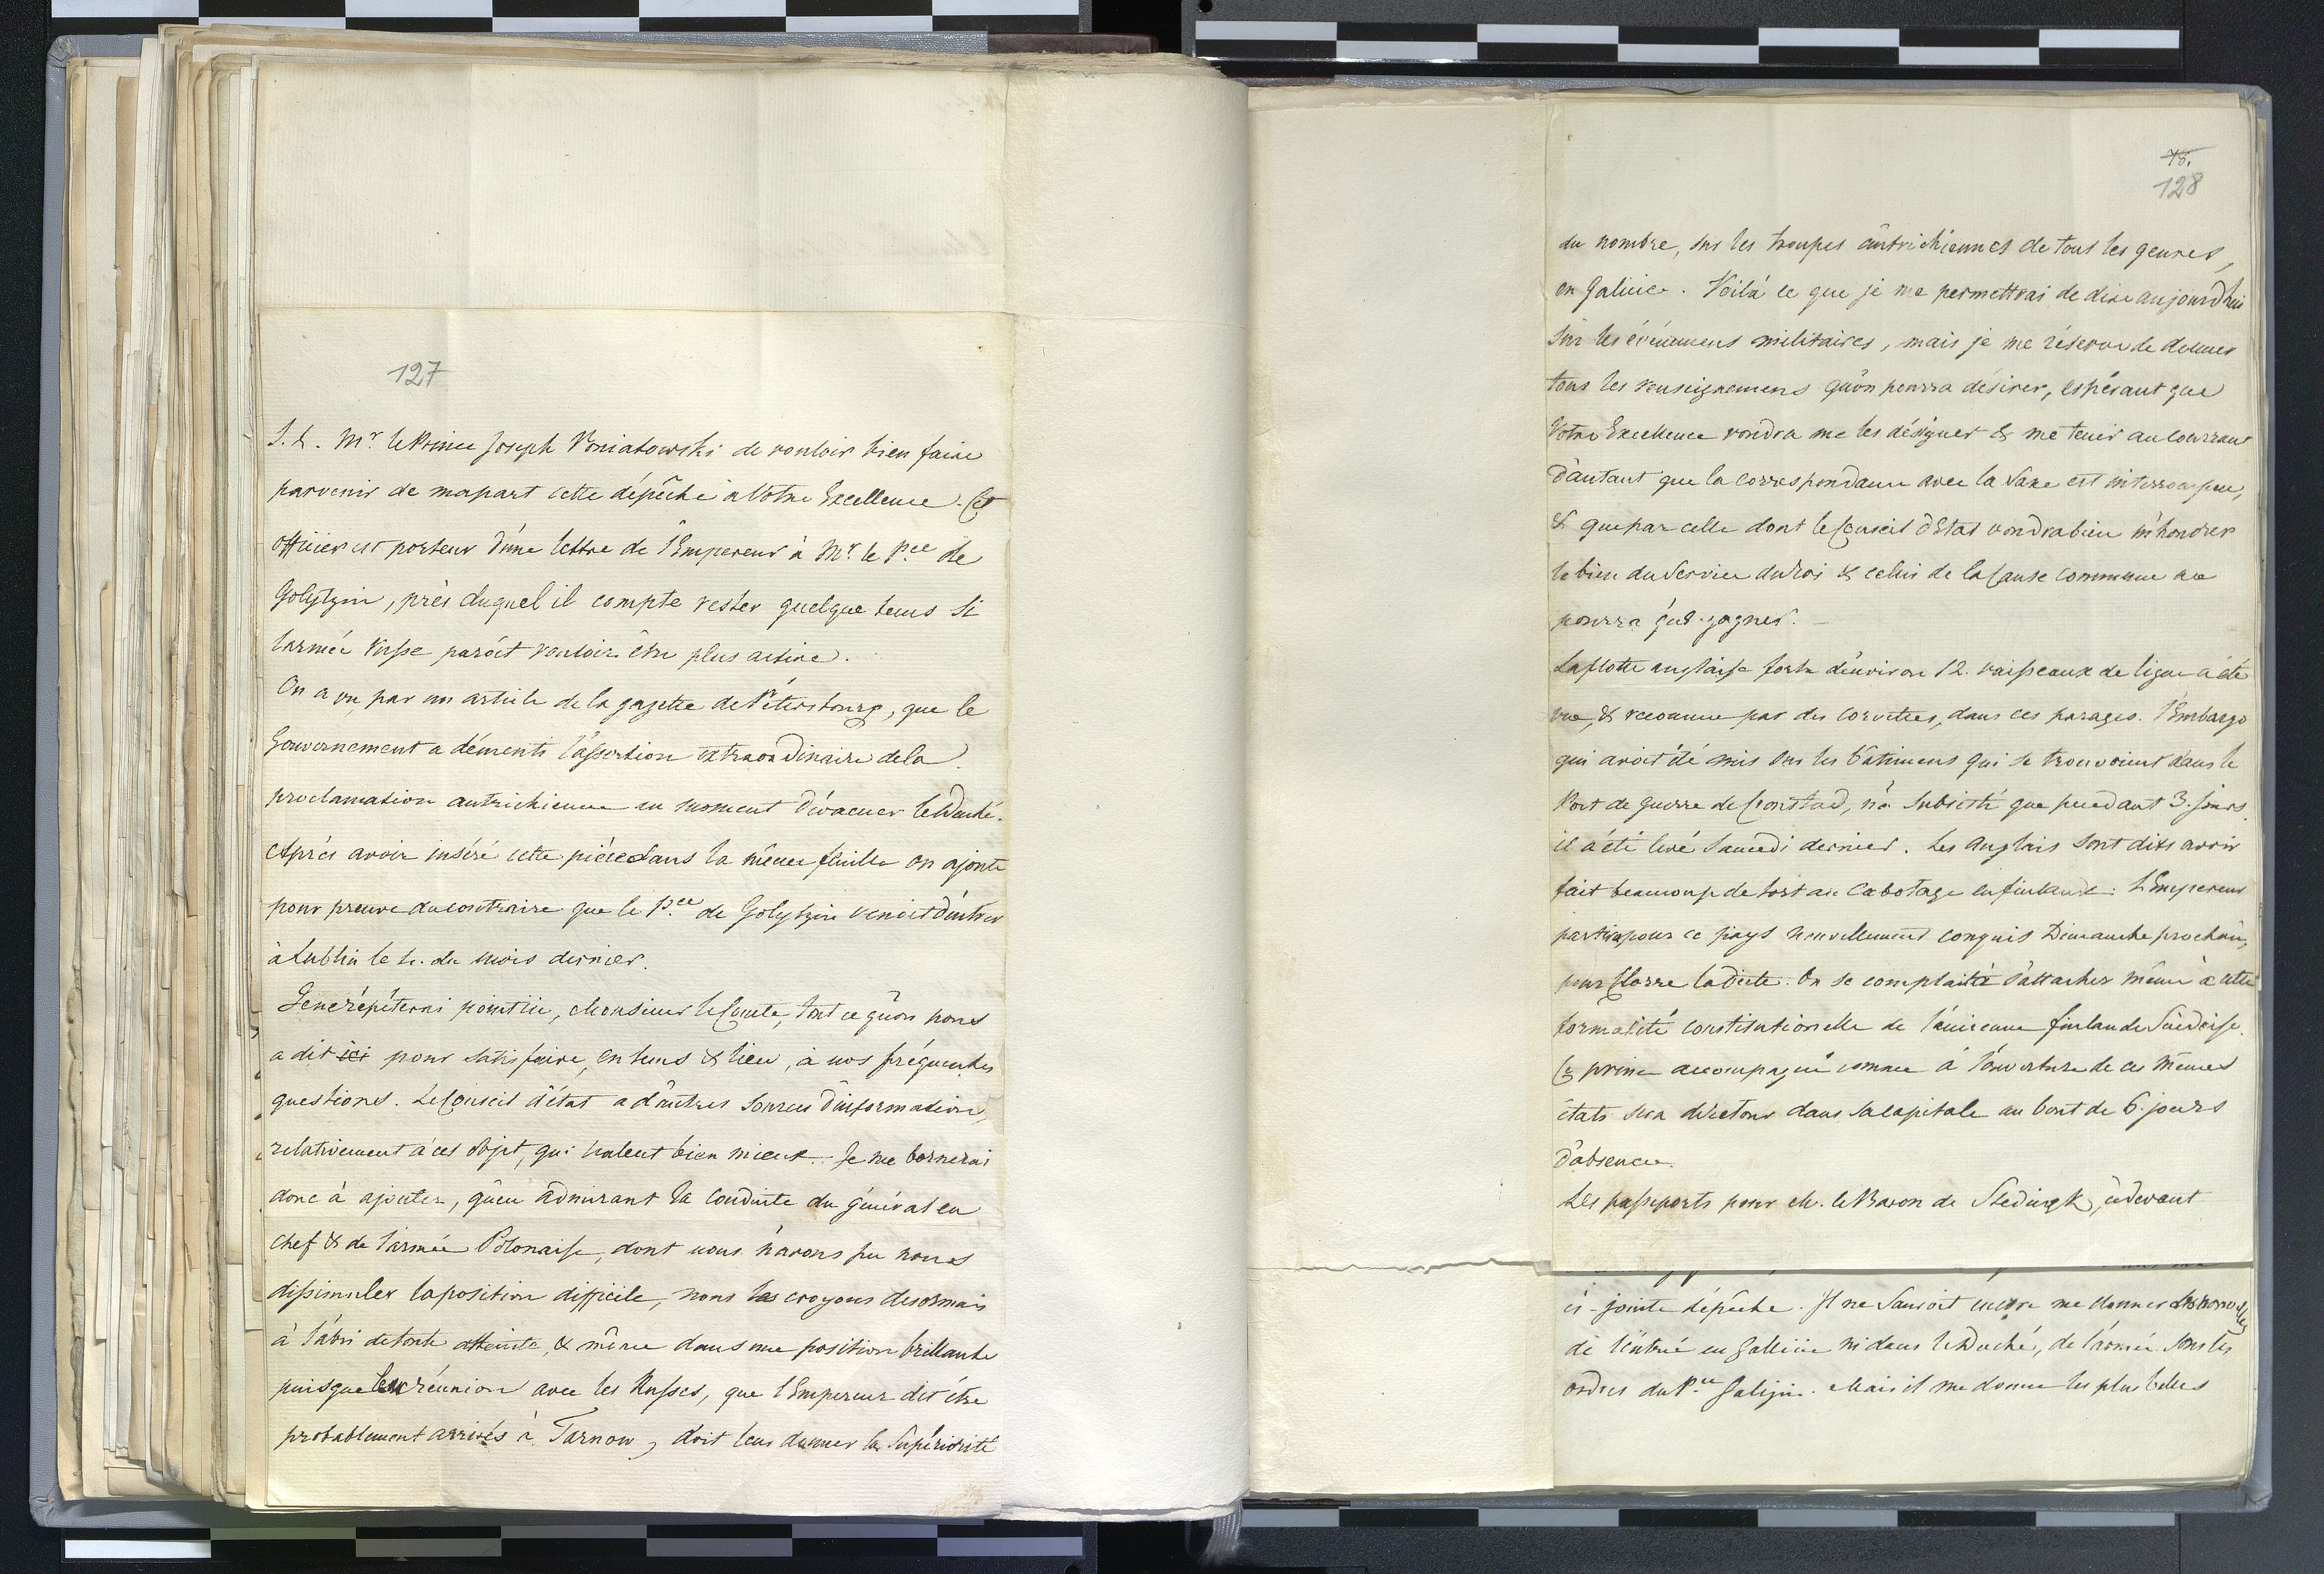 127
S. E. Mr. le Prince Joseph Poniatowski de vouloir bien faire
parvenir de mapart cette dépêche à Votre Excellence. Cet
officier est porteur d'une lettre de l'Empereur à Mr. le Pce de
Golytzin, près duquel il compte rester quelque tems si
l'armée Russe paroît vouloir être plus active.
On a vu par un article de la gazette de Pétersbourg, que le
Gouvernement a démenti l'assertion extraordinaire dela
proclamation autrichienne au moment d'évacuer le Duché.
Après avoir inséré cette pièce dans la même feuille on ajoute
pour preuve du contraire que le Pce de Golytzin venoit d'entrer
à Lublin le du mois dernier.
Je ne répéterai point ici, Monsieur le Comte, tout ce qu'on nous
a dit ici pour satisfaire, en tems & lieu, à nos fréquentes
questions. Le Conseil d'état a d'autres sources d'information,
relativement à ces objet, qui valent bien mieux. Je me bornerai
donc à ajouter, qu'en admirant la conduite du général en
chef & de l'armée Polonaise, dont nous n'avons pu nous
dissimuler la position difficile, nous les croyons desormais
à l'abri de toute atteinte, & même dans une position brillante
puisque leur réunion avec les Russes, que l'Empereur dit être
probablement arrivés à Tarnow, doit leur donner la supériorité
78.
128
du nombre, sur les troupes autrichiennes de tous les genres,
en Galicie. Voilà ce que je me permettrai de dire aujourd'hui
sur les événemens militaires, mais je me réserve de donner
tous les renseignemens qu'on pourra désirer, espérant que
Votre Excellence voudra me les désigner & me tenir au courrant
d'autant que la correspondance avec la Saxe est interrompue,
& que par celle dont le Conseil d'Etat voudra bien m'honorer
le bien du service du Roi & celui de la cause commune ne
pourra que gagner.
La flotte anglaise forte d'environ 12. vaisseaux de ligne a été
vue, & reconnue par des corvettes, dans ces parages. l'Embargo
qui avoit été mis sur les bâtimens qui se trouvoient dans le
Port de guerre de Cronstad, n'a subsisté que pendant 3. jours.
il a été levé samedi dernier. Les Anglais sont dits avoir
fait beaucoup de tort au cabotage en finlande. L'Empereur
partira pour ce pays nouvellement conquis Dimanche prochain,
pour Clorre la diete. On se complaît à s'attacher même à cette
formalité constitutionelle de l'ancienne finlande Suédoise.
Ce prince accompagné comme à l'ouverture de ces mêmes
états sera de retour dans sa capitale au bout de 6. jours
d'absence.
Les passeports pour M. le Baron de Stedingk, cidevant
ci-jointe dépêche. Il ne sauroit encore me donner des nouvelles
de l'entrée en Gallicie ni dans le Duché, de l'armée sous les
ordres du Pce Galizin. Mais il me donne les plus belles